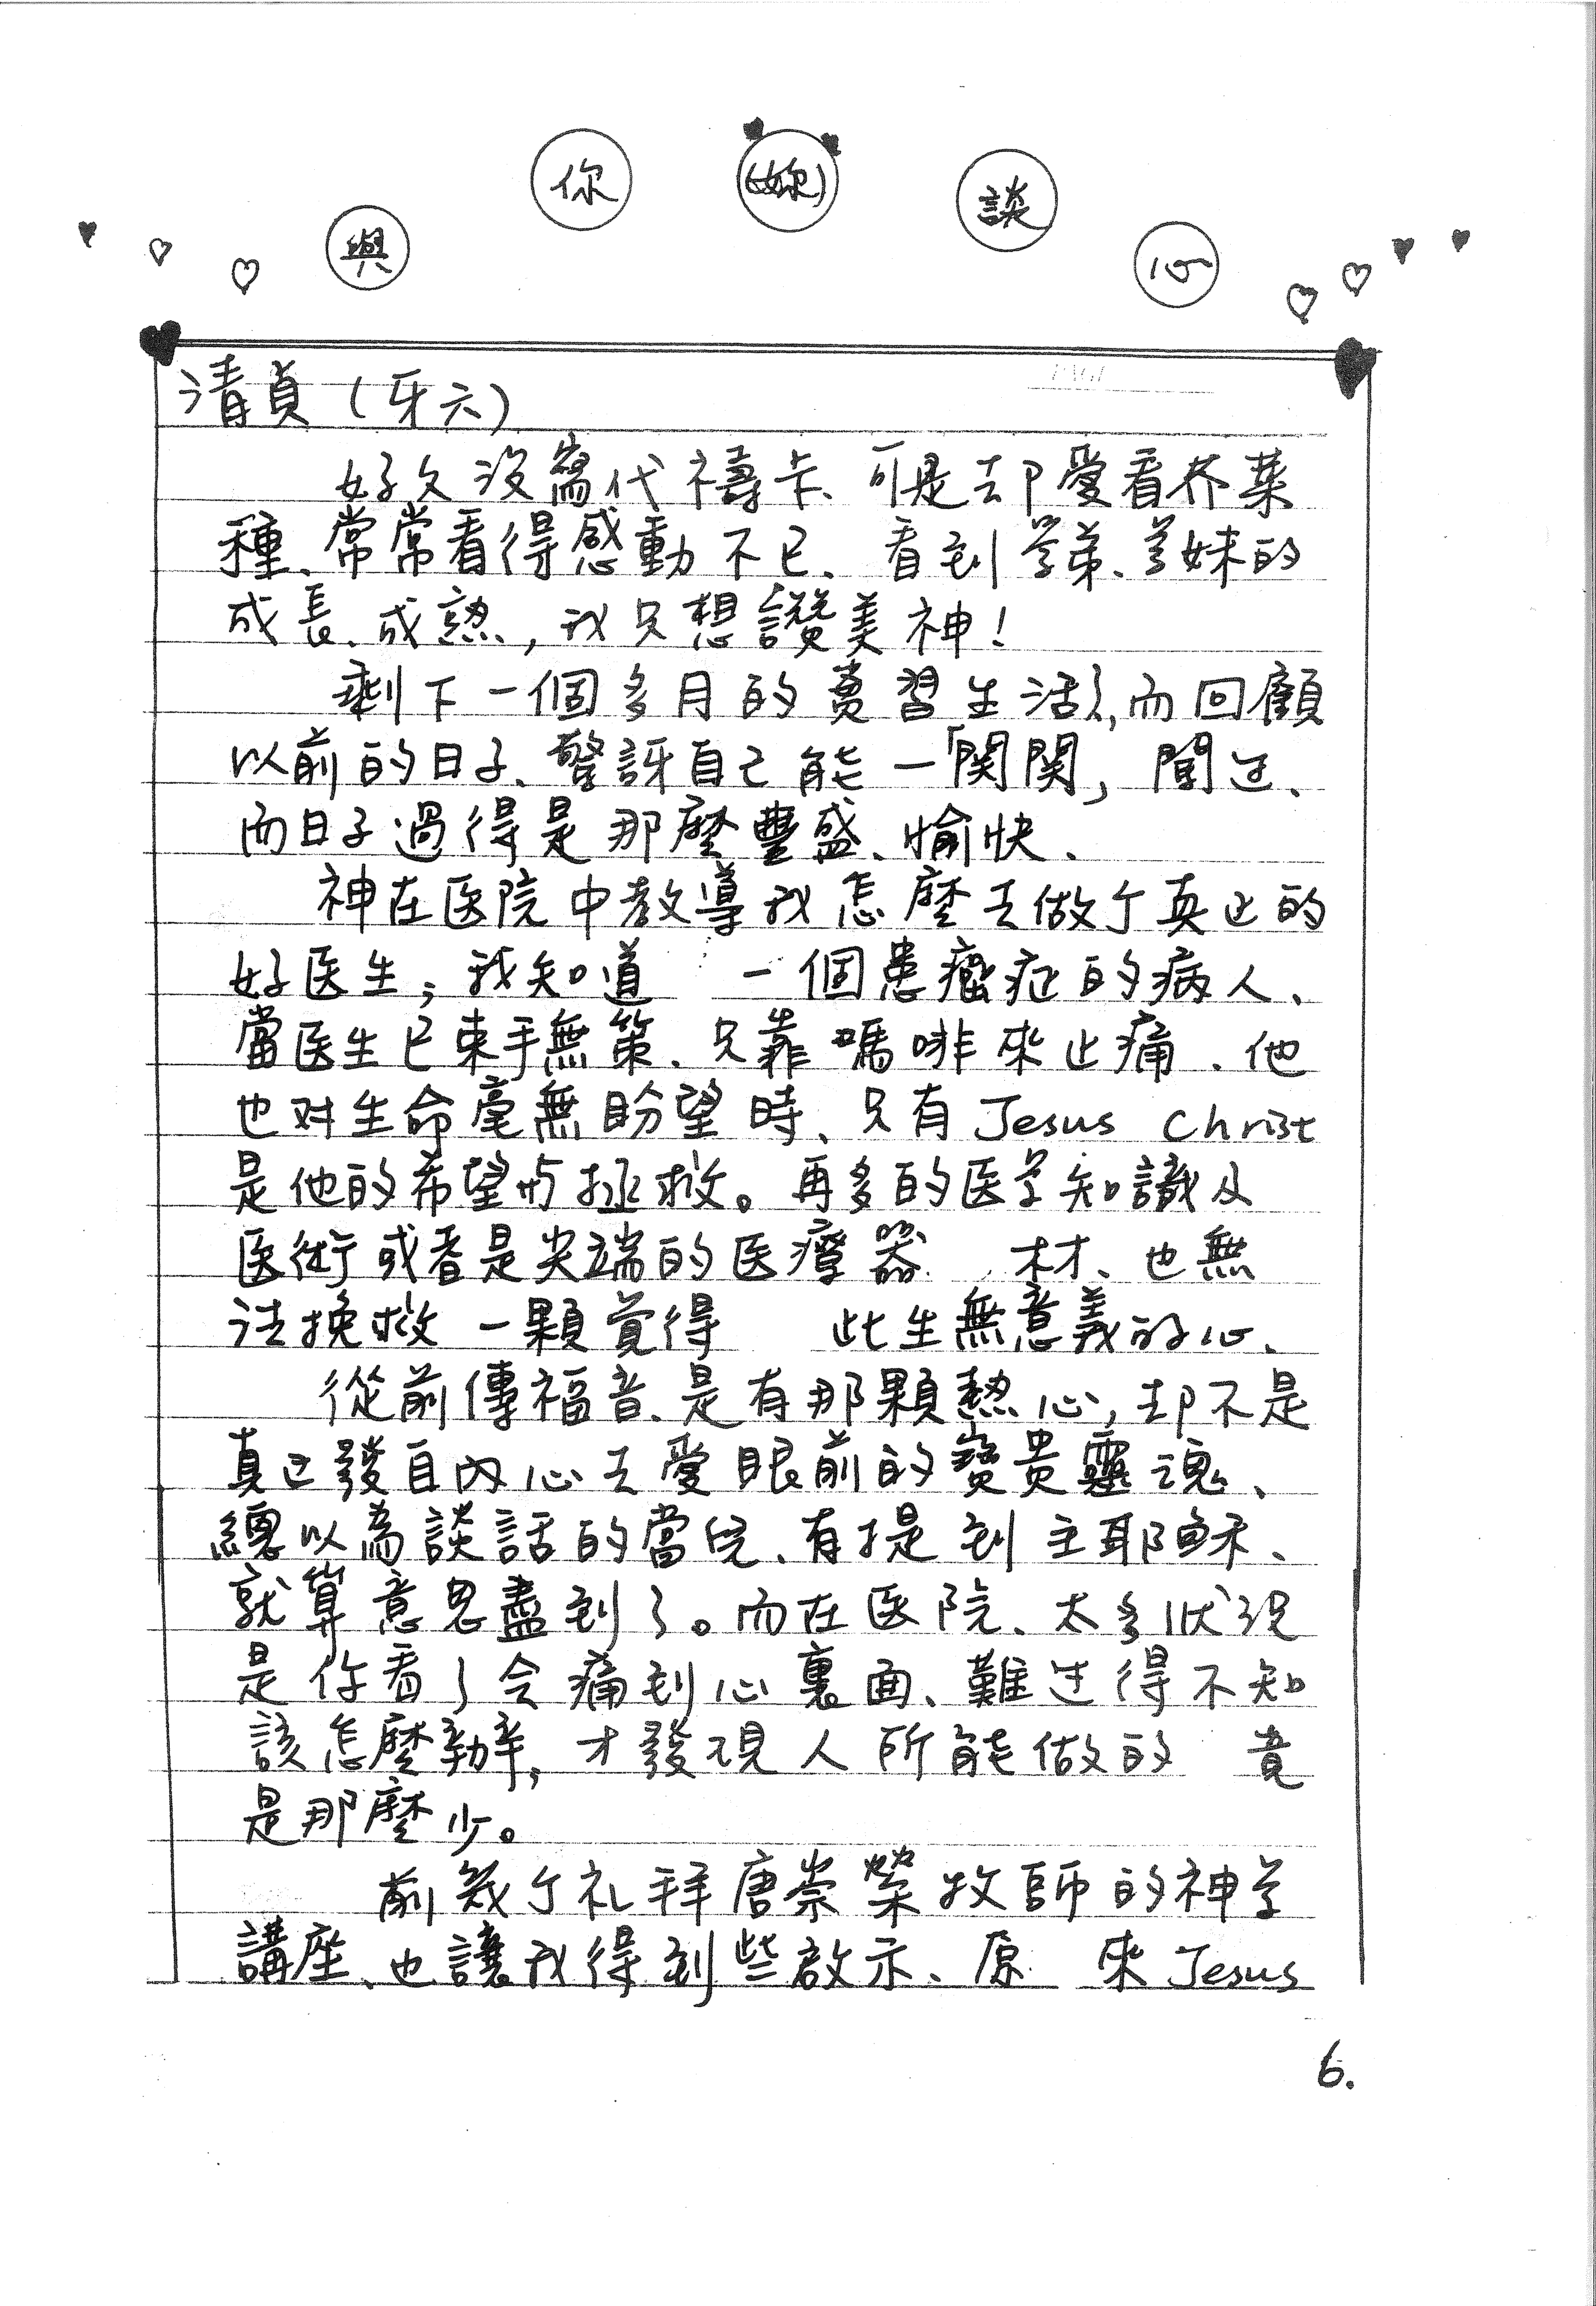 與你(妳)談心
清貞(牙六)
好久沒寫代禱卡、可是却愛看芥菜
種、常常看得感動不已、看到学弟、学妹的
成長、成熟,我只想讚美神!
剩下一個多月的實習生活,而回顧
以前的日子、驚訝自己能一「関関」闖过、
而日子過得是那麼豐盛、愉快、
神在医院中教導我怎麼去做个真正的
好医生,我知道 一個患癌症的病人、
當医生已束手無策、只靠嗎啡來止痛、他
也对生命毫無盼望時、只有Jesus Christ
是他的希望与拯救。再多的医学知識及
医術或者是尖端的医療器 材、也無
法挽救一顆覚得 此生無意義的心、
從前傳福音、是有那顆熱心,却不是
真正發自內心去愛眼前的寶貴靈魂、
總以為談話的當兒、有提到主耶穌、
就算意思盡到了。而在医院、太多狀況
是你看了会痛到心裏面、難过得不知
該怎麼辦,才發現人所能做的 竟
是那麼少。
前幾个礼拜唐崇榮牧師的神学
講座、也讓我得到些啟示、原 來Jesus
6.